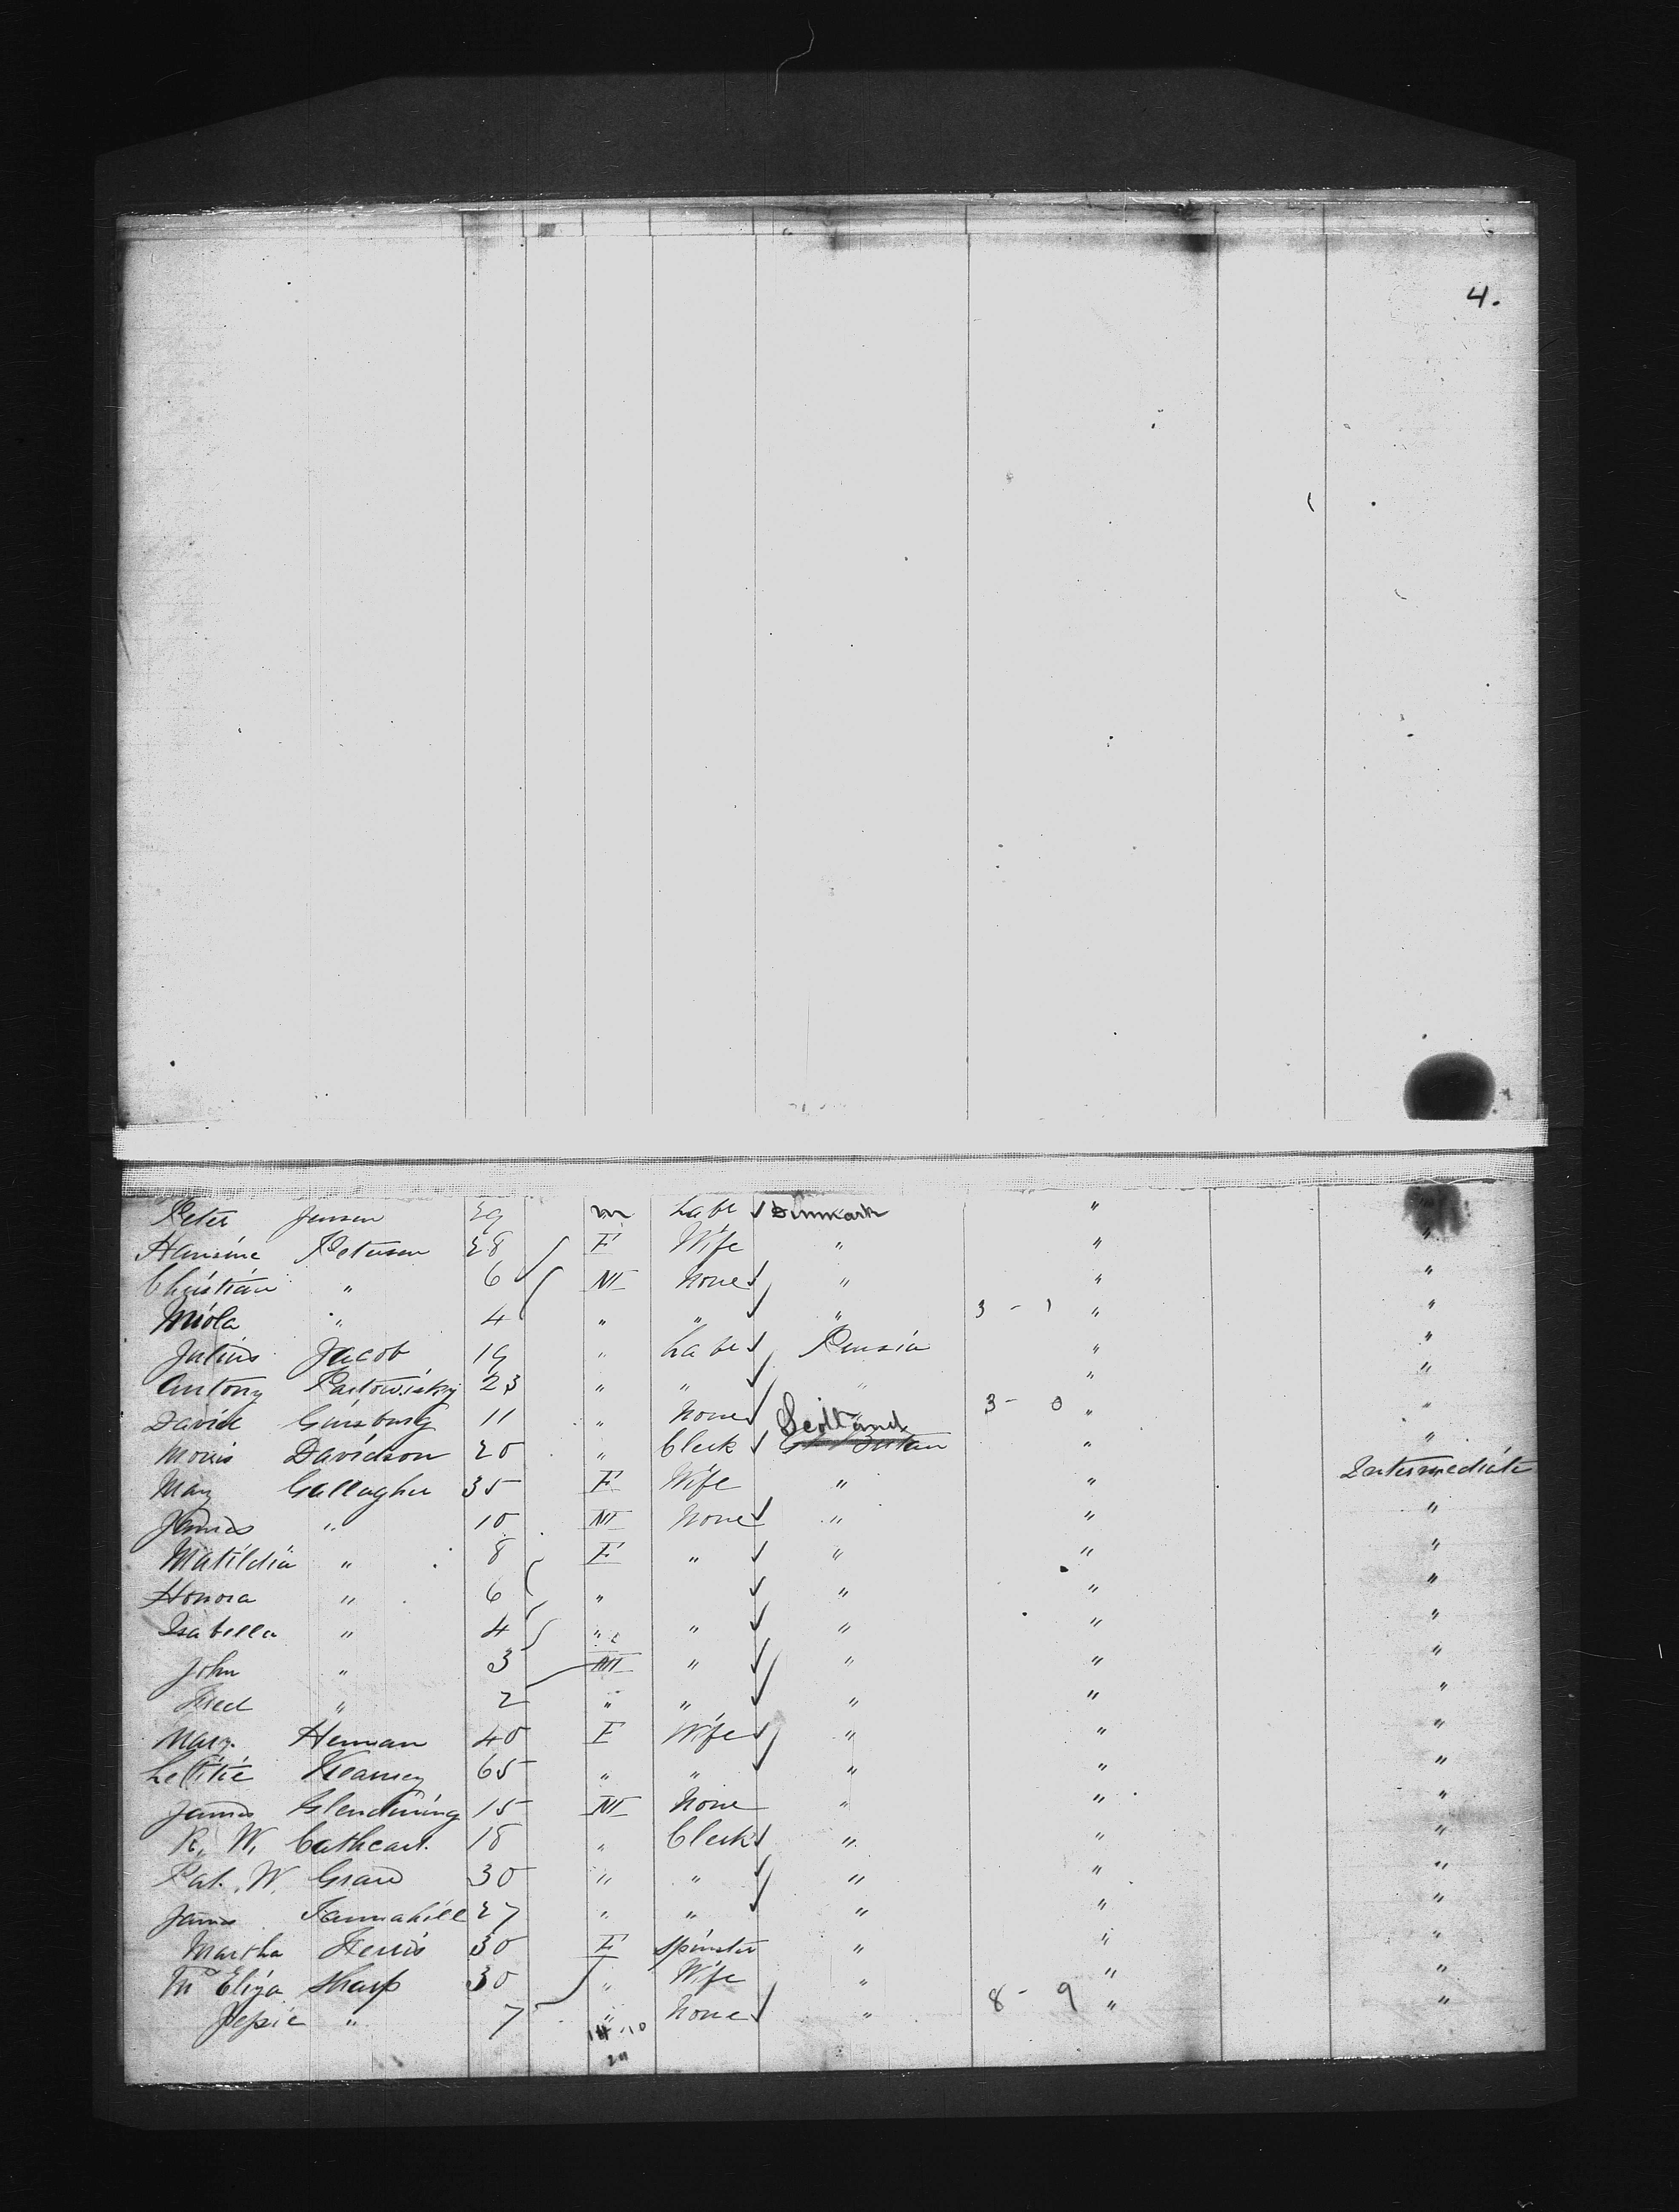 4.
Peter Jensen 29 m Labr ✓ Denmark " "
Hansine Petersen 28 F Wife " " "
Christian " 6 M None ✓ " " "
Miola " 4 " " ✓ " 3 - 1 " "
Julius Jacob 19 " Labr ✓ Russia " "
Antony 23 " " ✓ " " "
David Ginsburg 11 " None ✓ " 3 - 0 " "
Scotland
Morris Davidson 20 " Clerk ✓ Gt Britain " "
Mary Gallagher 35 F Wife " " Intermediate
James " 10 M None ✓ " " "
Matildia " 8 F " ✓ " " "
Honora " 6 " ✓ " " "
Isabella " 4 " " ✓ " " "
John " 3 M " ✓ " " "
Fred " 2 " " ✓ " " "
Mary Herman 40 F Wife ✓ " " "
Letitie Kearney 65 " " ✓ " " "
James Glendining 15 M None " " "
R. W. Cathcart. 18 " Clerk ✓ " " "
Pat. W. 30 " " ✓ " " "
James Tannahill 27 " " ✓ " " "
Martha Ferris 30 F Spinster " " "
Mrs Eliza Sharp 30 " Wife " " "
Jessie " 7 " None ✓ " 8 - 9 " "
14 10
24